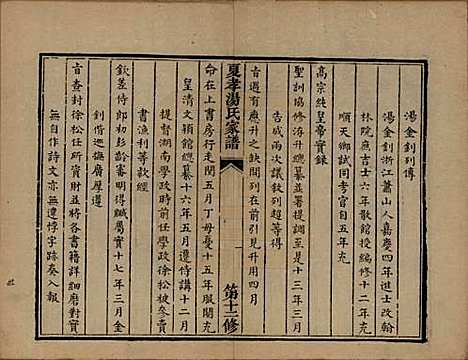 湯金釗列傳
湯金釗浙江蕭山人嘉慶四年進士改翰
林院庶吉士六年散館授編修十二年
順天鄉試同考官自五年充
高宗純皇帝實錄
聖訓協修洊升總纂並署提調至是十三年三月
告成兩次議敘列超等得
旨遇有應升之缺開列在前引見升用四月
夏孝湯氏家譜
第十二修
命在上書房行走閏五月丁母憂十五年服闋充
皇清文穎館總纂十六年五月遷侍講十二月
提督湖南學政時前任學政徐松被參賣
書漁利等款經
欽差侍郎初彭齡審明屬實十七年三月金
釗偕巡撫廣厚遵
旨查封徐松任所貲財並將各書籍詳細磨對實
無自作詩文亦無違悖字跡奏入報